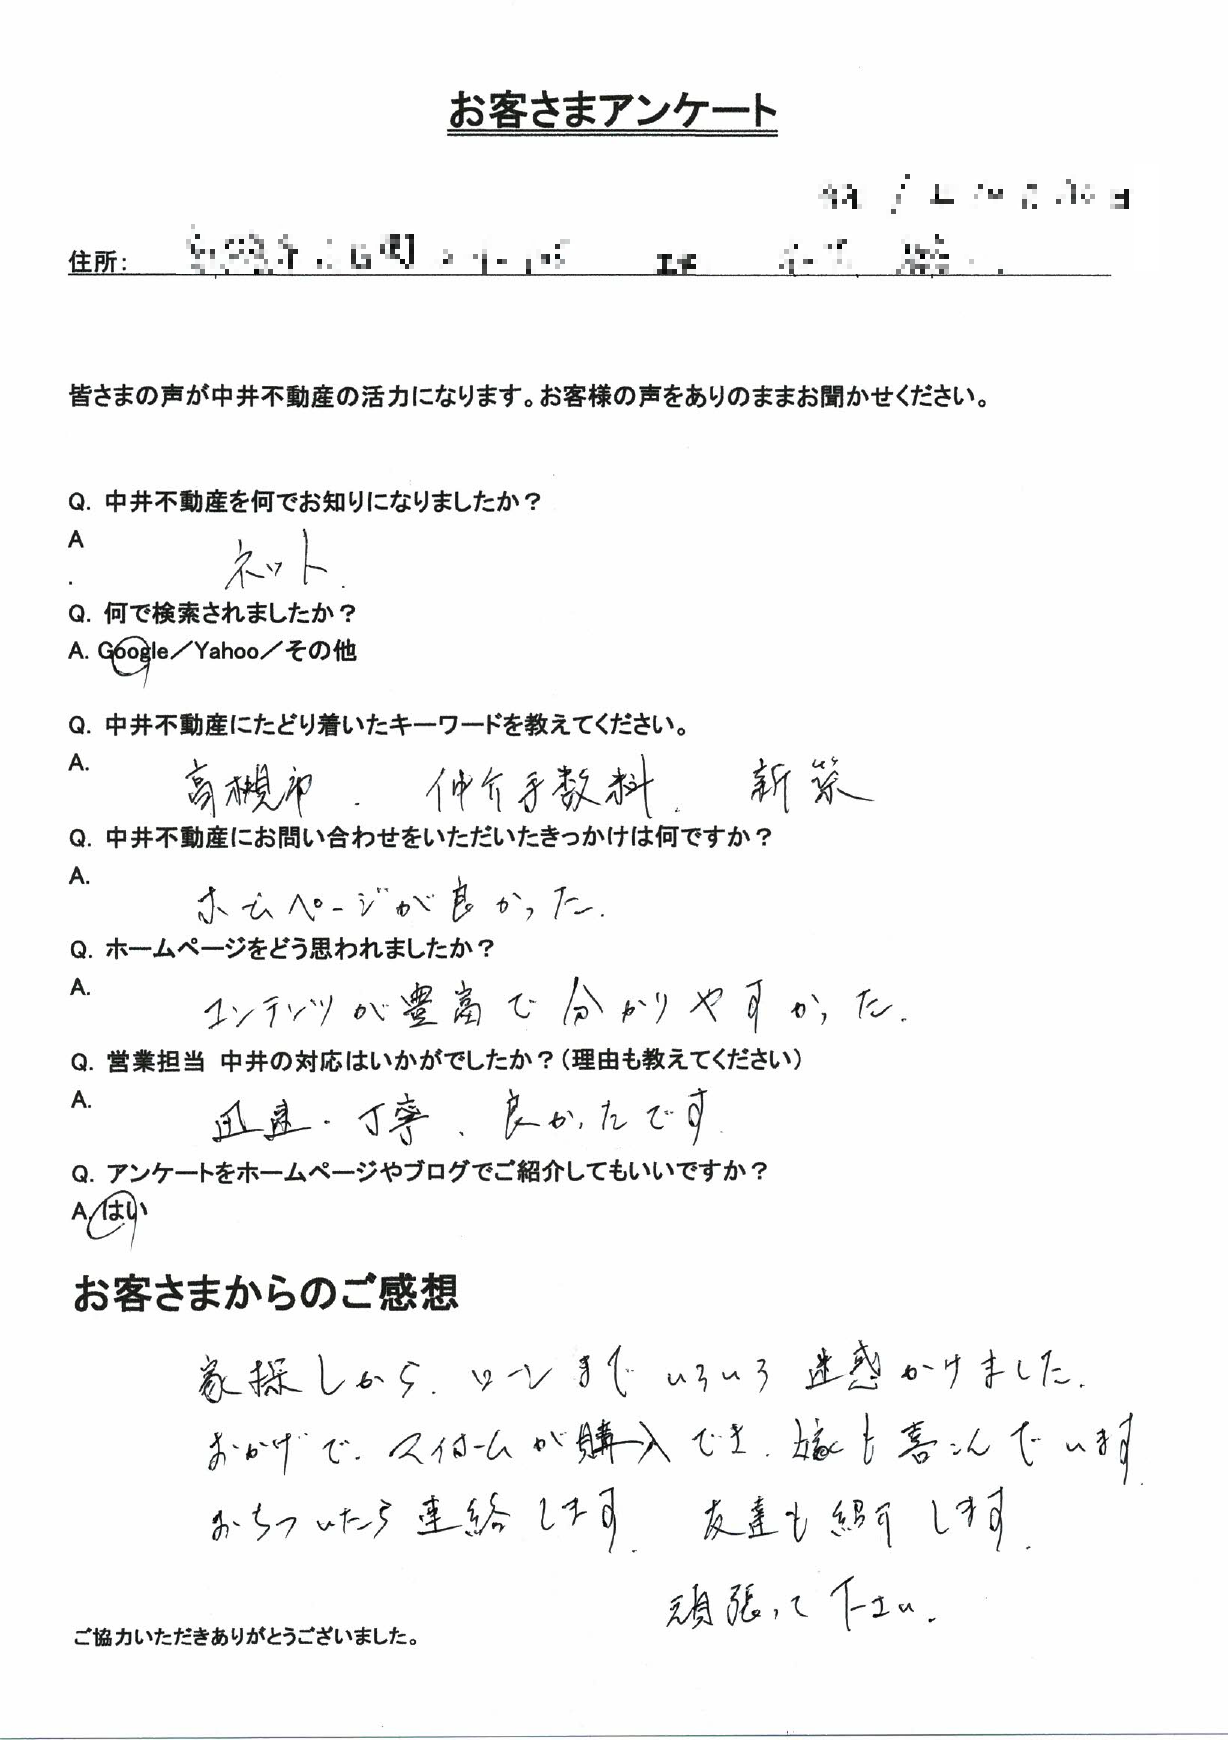 お客さまアンケート
住所:
皆さまの声が中井不動産の活力になります。お客様の声をありのままお聞かせください。
Q. 中井不動産を何でお知りになりましたか？
A
.
ネット.
Q. 何で検索されましたか？
A. Google／Yahoo／その他
Q. 中井不動産にたどり着いたキーワードを教えてください。
A.
高槻市. 仲介手数料. 新築
Q. 中井不動産にお問い合わせをいただいたきっかけは何ですか？
A.
ホームページが良かった.
Q. ホームページをどう思われましたか？
A.
コンテンツが豊富で分かりやすかった.
Q. 営業担当 中井の対応はいかがでしたか？（理由も教えてください）
A.
迅速・丁寧、良かったです.
Q. アンケートをホームページやブログでご紹介してもいいですか？
A. はい
お客さまからのご感想
家探しから、ローンまでいろいろ迷惑かけました.
おかげで、マイホームが購入でき、嫁も喜こんでいます.
おちついたら連絡します. 友達も紹介します.
頑張って下さい.
ご協力いただきありがとうございました。